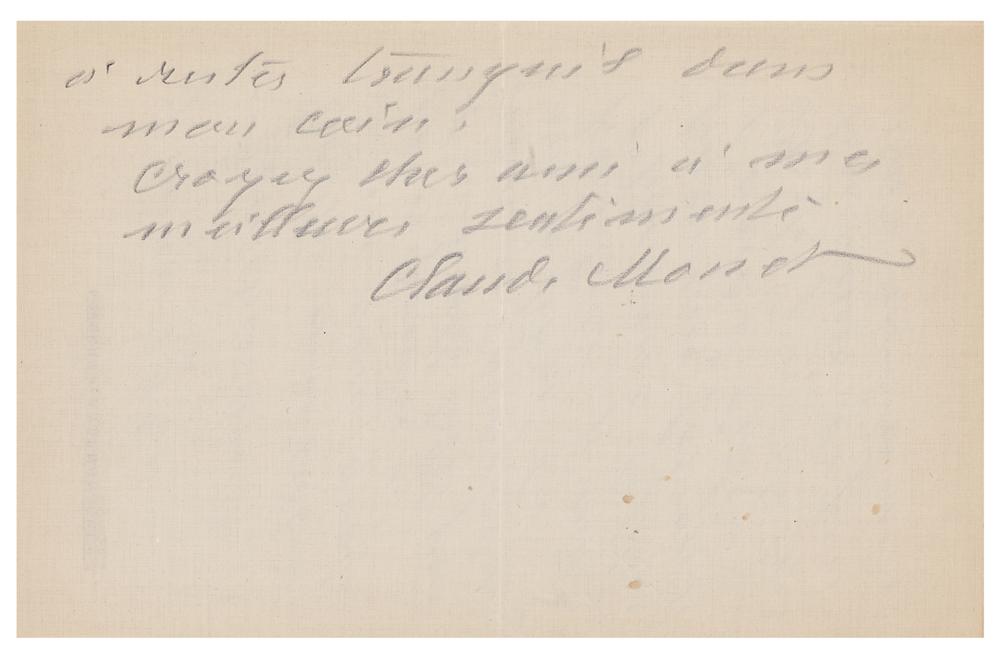 à rester tranquil dans
mon coin.
Croyez cher ami à mes
meilleurs sentiments
Claude Monet